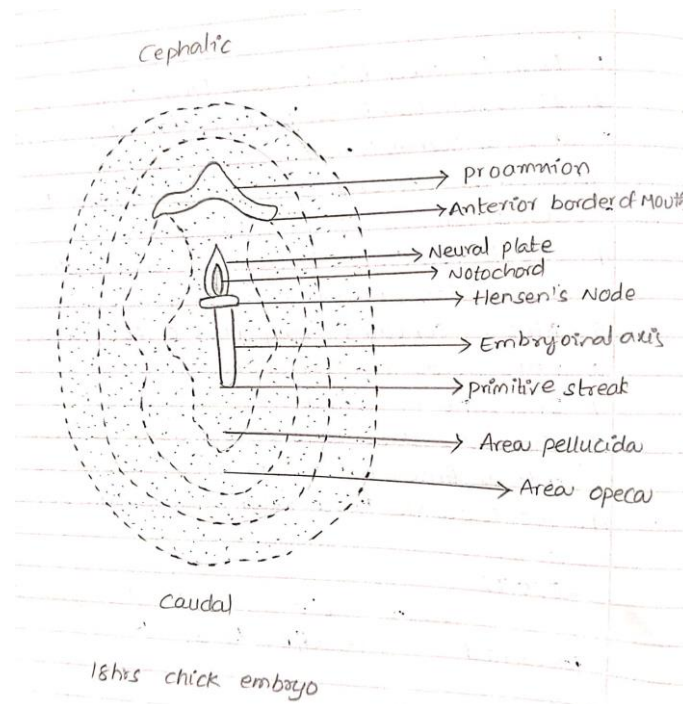 Cephalic
proamnion
Anterior border of Mouth
Neural plate
Notochord
Hensen's Node
Embryoinal axis
primitive streak
Area pellucida
Area opeca
Caudal
18hrs chick embryo